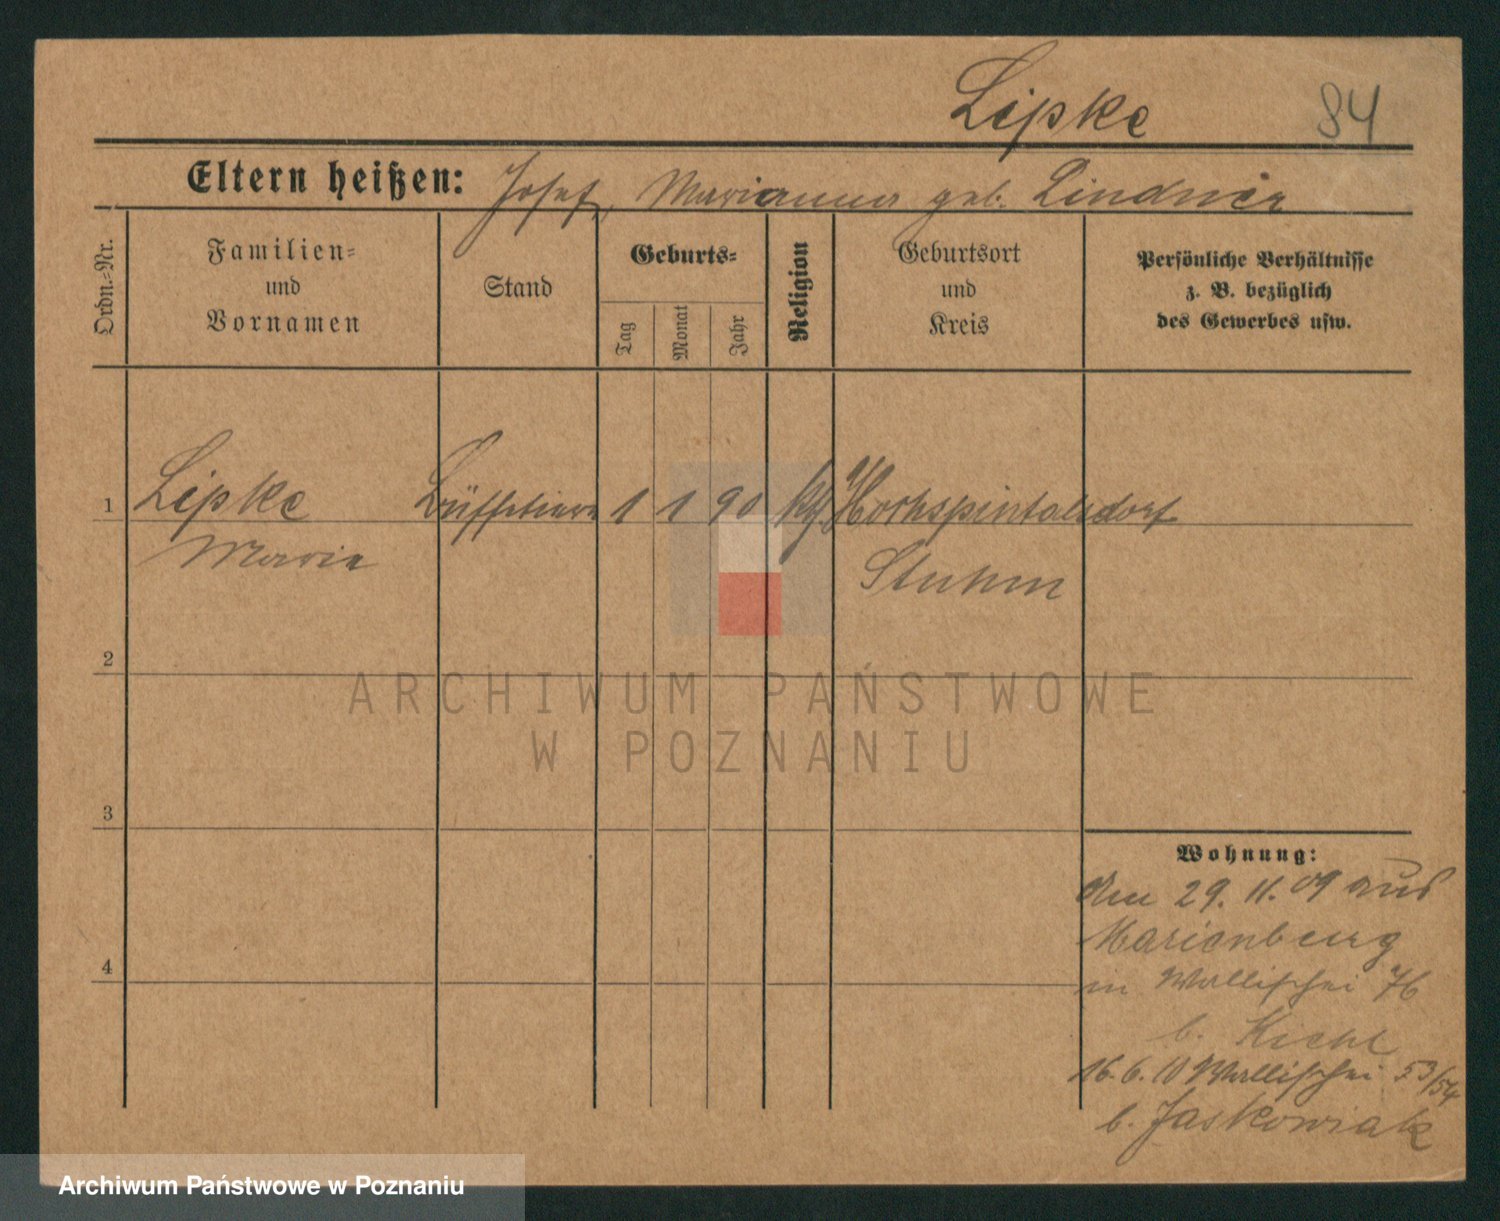 Lipke 84
Eltern heißen: Josef, Marianna geb. Lindner
Ordn.-Nr.
Familien-
und
Vornamen
Stand
Geburts-
Tag
Monat
Jahr
Religion
Geburtsort
und
Kreis
Persönliche Verhältnisse
z. B. bezüglich
des Gewerbes usw.
1 Lipke Büffetiere 1 1 90 kth
Marie Stuhm
2
ARCHIWUM PAŃSTWOWE
W POZNANIU
3
Wohnung:
Am 29. 11. 09 aus
Marienburg
4
in Wallischei 76
b. Kiehl
16. 6. 10 Wallischei 53/54
b. Jaskowiak
Archiwum Państwowe w Poznaniu